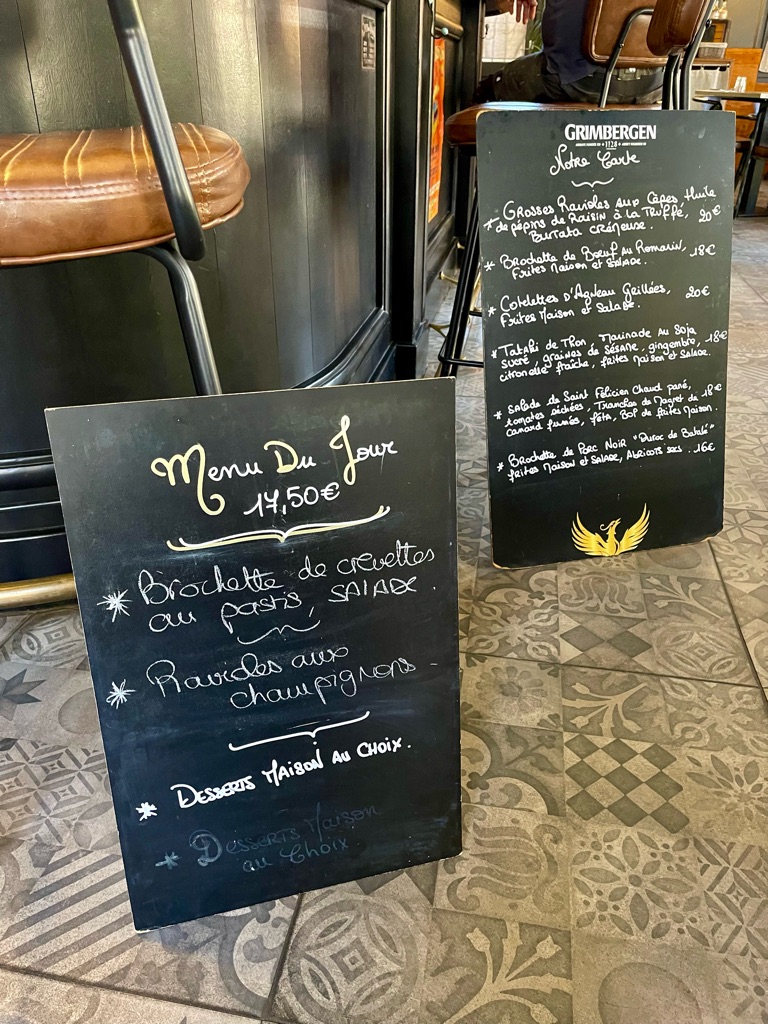 Menu Du Jour
17,50€
* Brochette de crevettes
au pastis, SALADE.
* Ravioles aux
champignons
* DESSERTS MAISON AU CHOIX.
* Desserts Maison
au Choix
GRIMBERGEN
1128
Notre Carte
* GROSSES RAVIOLES AUX CÈPES, Huile
de pépins de RAISIN à LA TRUFFE, 20€
BURTATA CRÉMEUSE.
* BROCHETTE DE BOEUF AU ROMARIN, 18€
FRITES MAISON et SALADE.
* COTELETTES D'AGNEAU GRILLÉES, 20€
FRITES MAISON et SALADE.
* TATAKI de THON, MARINADE AU SOJA
SUCRÉ, graines de SÉSAME, gingembre, 18€
citronelle fraîche, frites MAISON et SALADE.
* SALADE de SAINT FÉLICIEN CHAUD pané,
tomates séchées, TRANCHES de MAGRET de 18€
CANARD fumés, féta, BOP de frites MAISON.
* BROCHETTE de PORC NOIR "DUROC de BATALLÉ"
FRITES MAISON et SALADE, ABRICOTS SECS. 16€